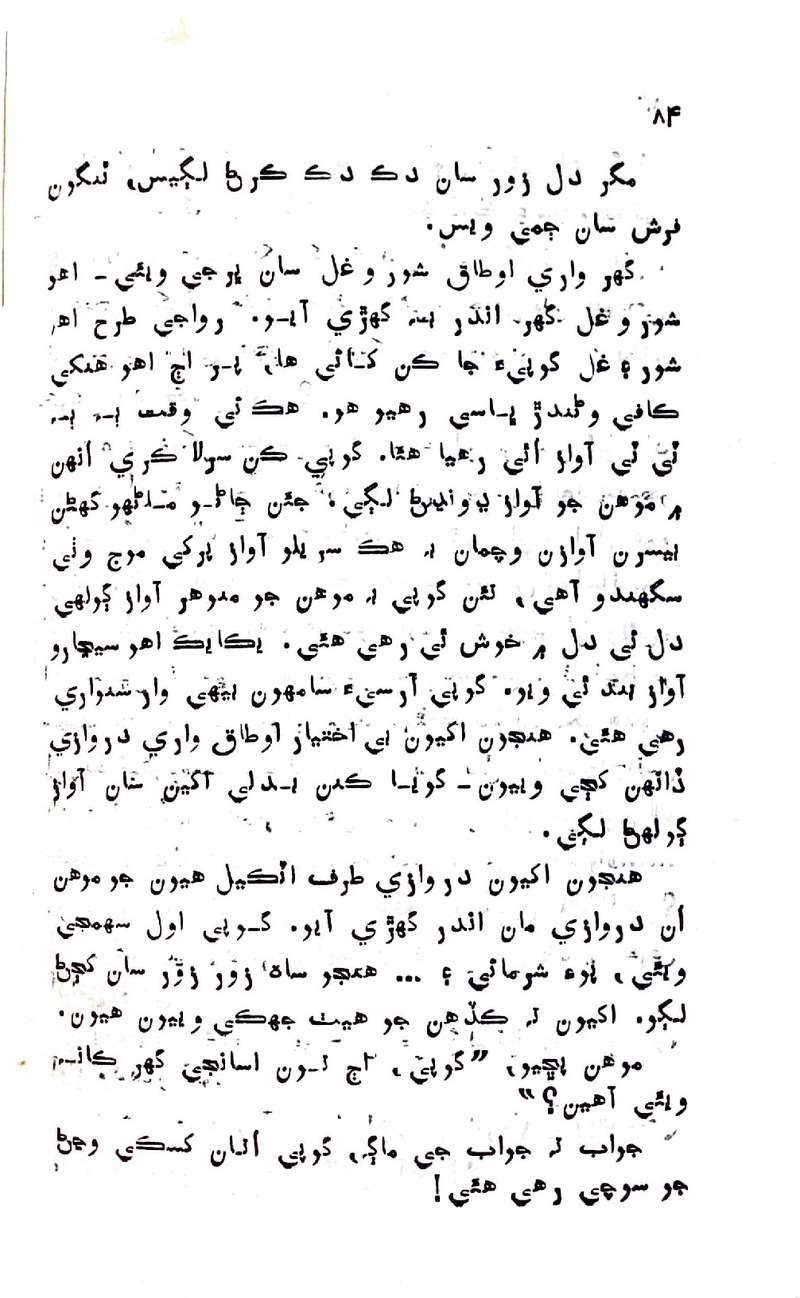 ۸۴
مگر دل زور سان دڪ دڪ ڪرڻ لڳيس، ٽنگون
فرش سان ڄمي ويس.
گهر واري اوطاق شور وغل سان ڀرجي ويئي ـ اهو
شور وغل گهر اندر به گهڙي آيو. رواجي طرح اهو
شور ۽ غل گوپيءَ جا ڪن کائي ها، پر اڄ اهو هنکي
ڪافي وڻندڙ ڀاسي رهيو هو. هڪ ئي وقت ٻه ٻه
ٽي ٽي آواز اُٿي رهيا هئا. گوپي ڪن سرلا ڪري اُنهن
۾ موهن جو آواز ڍونڍڻ لڳي؛ جڻن ڄاڻو مـاڻهو گهڻن
بيسرن آوازن وچمان به هڪ سريلو آواز پرکي موج وٺي
سگهندو آهي، تئن گوپي به موهن جو منوهر آواز ڳولهي
دل ئي دل ۾ خوش ٿي رهي هئي. يڪايڪ اهو سيڄارو
آواز بند ٿي ويو. گوپي آرسيءَ سامهون بيهي وار سنواري
رهي هئي. هنجون اکيون بي اختيار اوطاق واري دروازي
ڏانهن کڄي ويون ـ گويا ڪنن بـدلي اکين سان آواز
ڳولهڻ لڳي.
هنجون اکيون دروازي طرف اٽڪيل هيون جو موهن
اُن دروازي مان اندر گهڙي آيو. گوپي اول سهمجي
ويئي، پوءِ شرمائي ۽ ... هنجو ساهه زور زور سان کڄڻ
لڳو. اکيون ته ڪڏهن جو هيٺ جهڪي ويون هيون.
موهن پڇيو، ”گوپي، اڄ تون اسانجي گهر ڪانه
ويئي آهين؟“
جواب ته جواب جي ماڳ، گوپي اُتان کسڪي وڃڻ
جو سوچي رهي هئي!